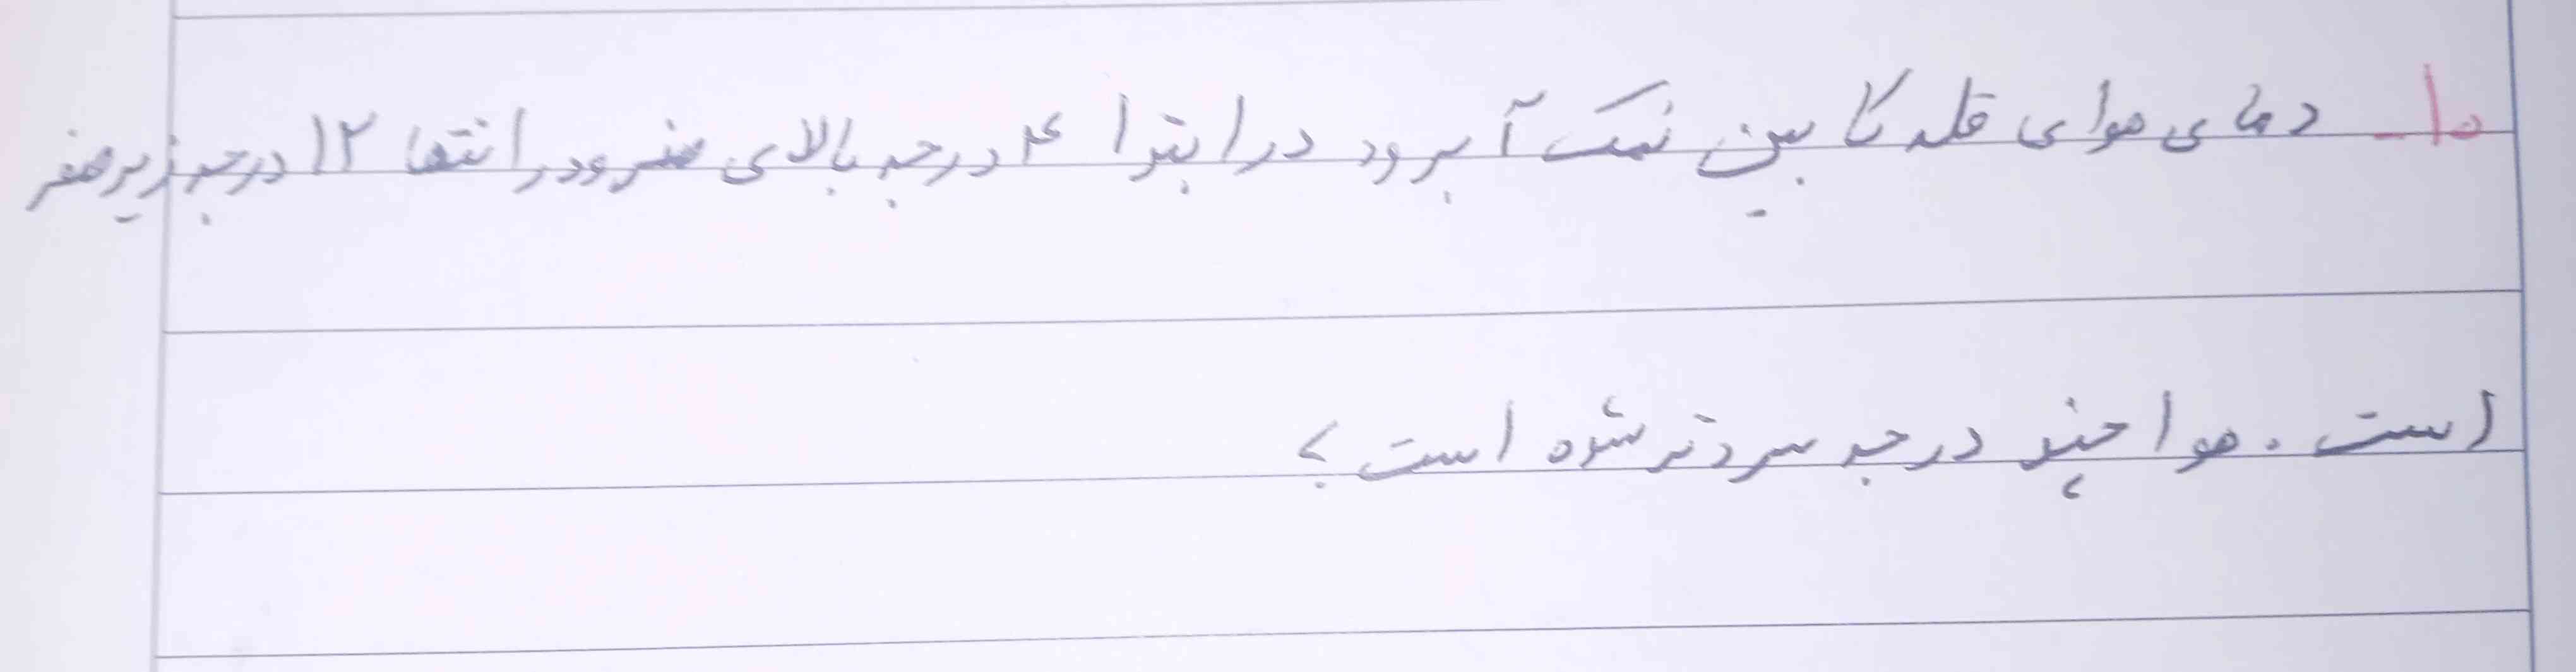 ۱۰ـ دمای هوای قله کابین نمک آبرود در ابتدا ۴ درجه بالای صفر و در انتها ۱۲ درجه زیر صفر
است . هوا چند درجه سردتر شده است ؟